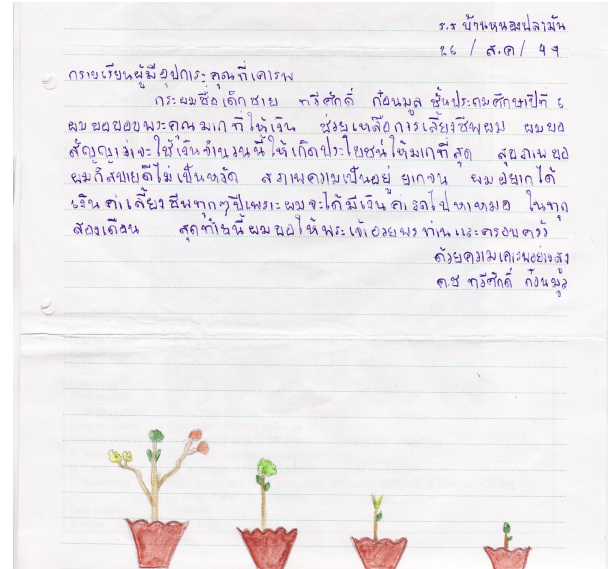 ร.ร บ้านหนองปลามัน
26 / ส.ค / 49
กราบเรียนผู้มีอุปการะคุณที่เคารพ
กระผมชื่อเด็กชาย ทวีศักดิ์ ก้อนมูล ชั้นประถมศึกษาปีที่ 6
ผมขอขอบพระคุณมากที่ให้เงิน ช่วยเหลือการเลี้ยงชีพผม ผมขอ
สัญญาว่าจะใช้เงินจำนวนนี้ให้เกิดประโยชน์ให้มากที่สุด สุขภาพของ
ผมก็สบายดีไม่เป็นหวัด สภาพความเป็นอยู่ ยากจน ผมอยากได้
เงินค่าเลี้ยงชีพทุกๆปีเพราะผมจะได้มีเงินค่ารถไปหาหมอ ในทุก
สองเดือน สุดท้ายนี้ผมขอให้พระเจ้าอวยพรท่านและครอบครัว
ด้วยความเคารพอย่างสูง
ด.ช ทวีศักดิ์ ก้อนมูล